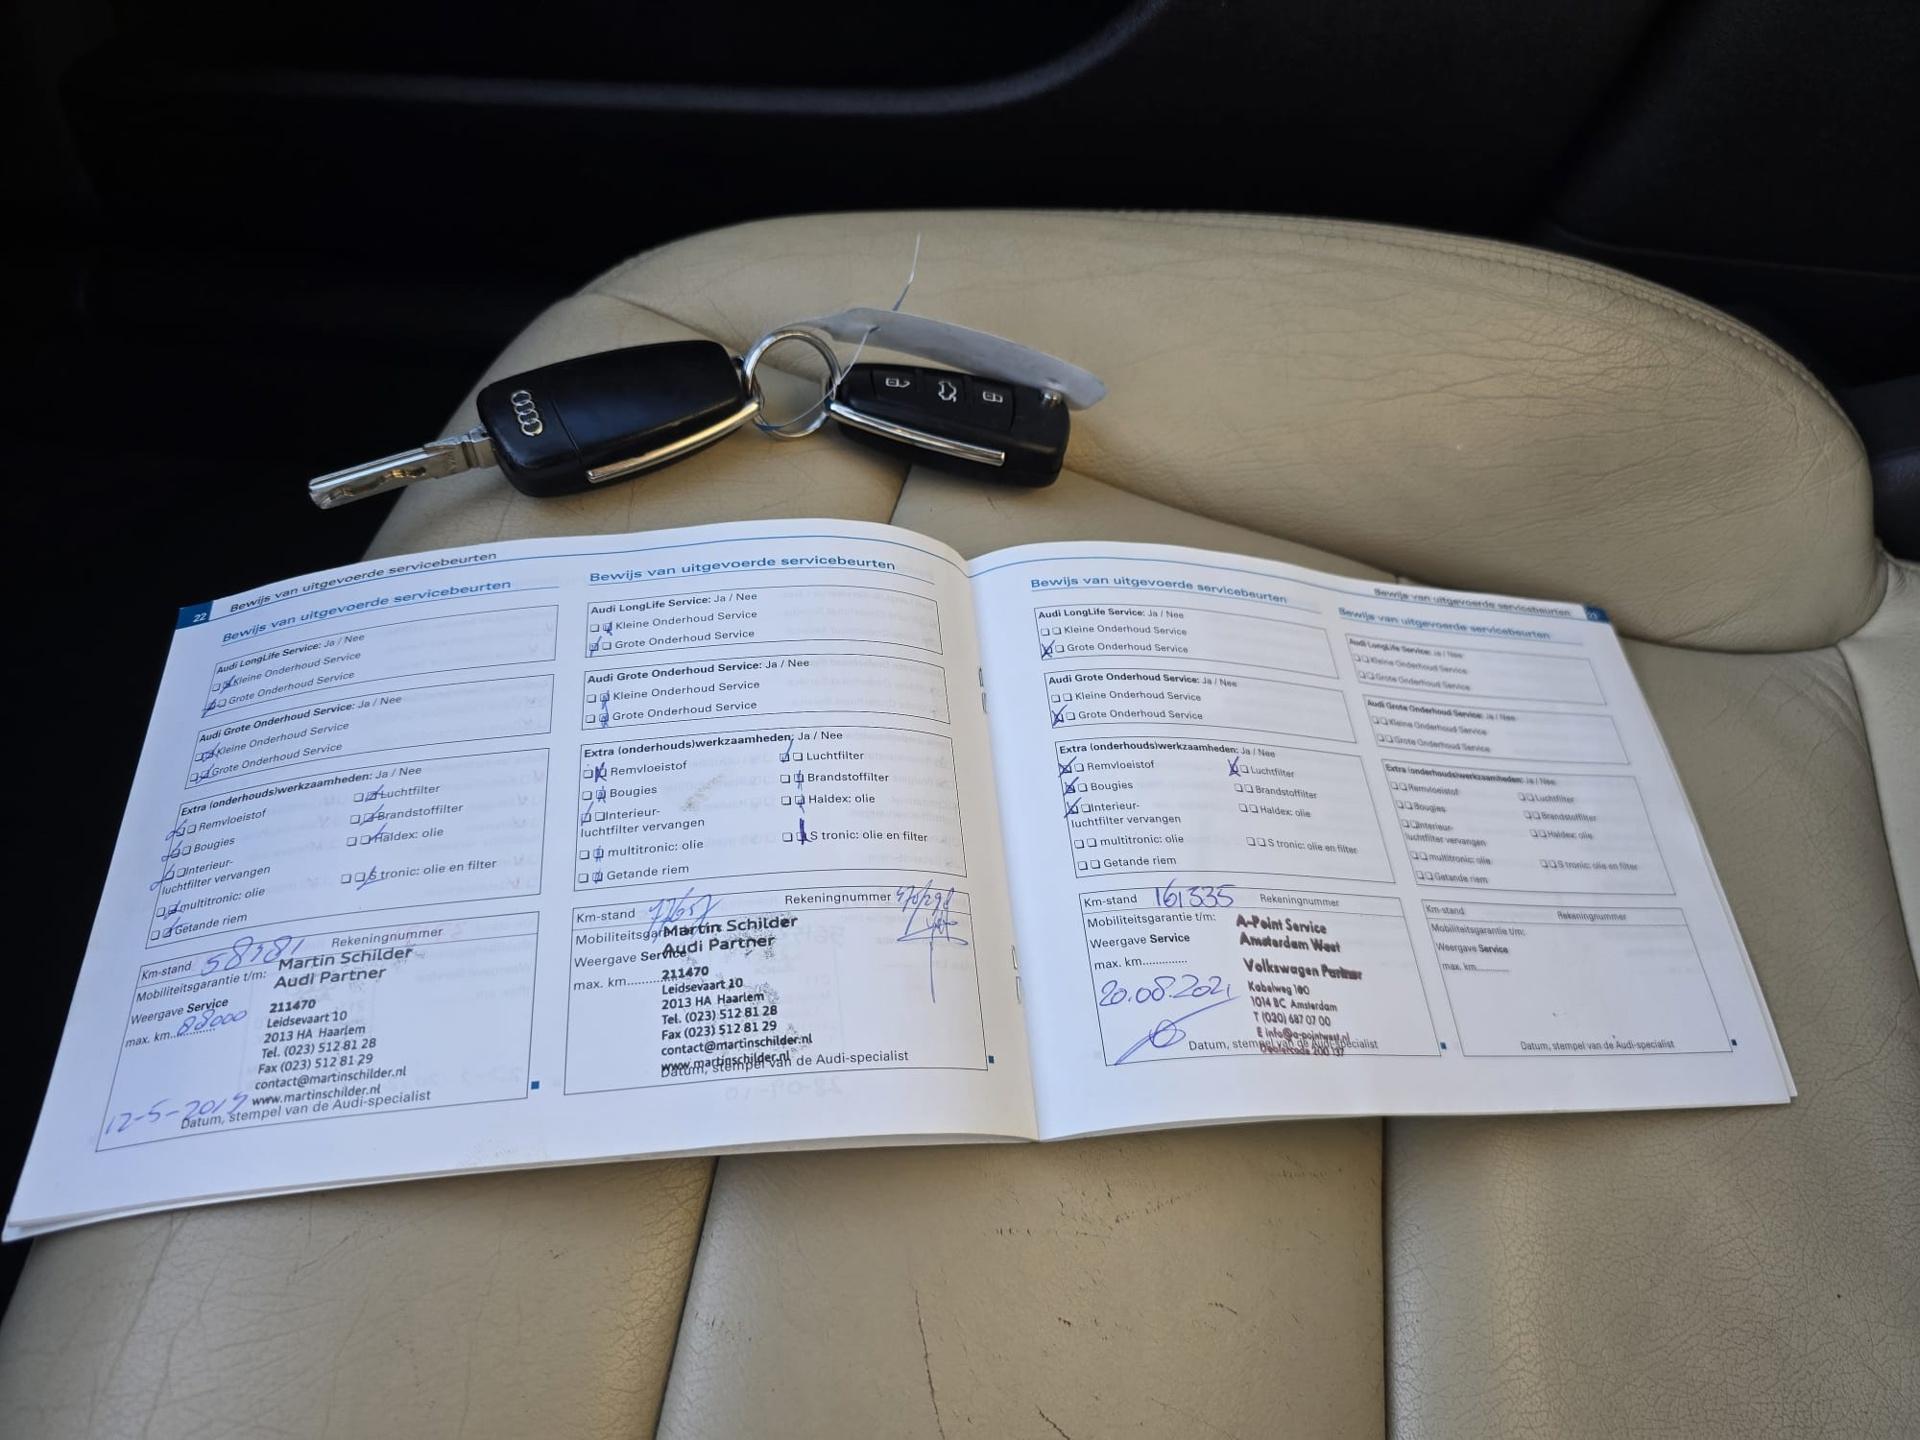 22
Bewijs van uitgevoerde servicebeurten
Bewijs van uitgevoerde servicebeurten
Audi LongLife Service: Ja / Nee
Kleine Onderhoud Service
Grote Onderhoud Service
Audi Grote Onderhoud Service: Ja / Nee
Kleine Onderhoud Service
Grote Onderhoud Service
Extra (onderhouds)werkzaamheden: Ja / Nee
Remvloeistof Luchtfilter
Bougies Brandstoffilter
Interieur- Haldex: olie
luchtfilter vervangen
multitronic: olie S tronic: olie en filter
Getande riem
Km-stand 58781 Rekeningnummer
Mobiliteitsgarantie t/m: Martin Schilder
Audi Partner
Weergave Service 211470
max. km......... 88000 Leidsevaart 10
2013 HA Haarlem
Tel. (023) 512 81 28
Fax (023) 512 81 29
contact@martinschilder.nl
www.martinschilder.nl
12-5-
Datum, stempel van de Audi-specialist
Bewijs van uitgevoerde servicebeurten
Audi LongLife Service: Ja / Nee
Kleine Onderhoud Service
Grote Onderhoud Service
Audi Grote Onderhoud Service: Ja / Nee
Kleine Onderhoud Service
Grote Onderhoud Service
Extra (onderhouds)werkzaamheden: Ja / Nee
Remvloeistof Luchtfilter
Bougies Brandstoffilter
Interieur- Haldex: olie
luchtfilter vervangen
multitronic: olie S tronic: olie en filter
Getande riem
Km-stand Rekeningnummer
Martin Schilder
Weergave Service Audi Partner
max. km......... 211470
Leidsevaart 10
2013 HA Haarlem
Tel. (023) 512 81 28
Fax (023) 512 81 29
contact@martinschilder.nl
www.martinschilder.nl
Datum, stempel van de Audi-specialist
Bewijs van uitgevoerde servicebeurten
Bewijs van uitgevoerde servicebeurten
Audi LongLife Service: Ja / Nee
Kleine Onderhoud Service
Grote Onderhoud Service
Audi Grote Onderhoud Service: Ja / Nee
Kleine Onderhoud Service
Grote Onderhoud Service
Extra (onderhouds)werkzaamheden: Ja / Nee
Remvloeistof Luchtfilter
Bougies Brandstoffilter
Interieur- Haldex: olie
luchtfilter vervangen
multitronic: olie S tronic: olie en filter
Getande riem
Km-stand 161335 Rekeningnummer
Mobiliteitsgarantie t/m: A-Point Service
Weergave Service Amsterdam West
max. km.............. Volkswagen Partner
20.08.2021 Kabelweg 100
1014 BC Amsterdam
T (020) 687 07 00
E info@a-pointwest.nl
Datum, stempel van de Audi-specialist
Dealercode 200 137
Bewijs van uitgevoerde servicebeurten
Audi LongLife Service: Ja / Nee
Kleine Onderhoud Service
Grote Onderhoud Service
Audi Grote Onderhoud Service: Ja / Nee
Kleine Onderhoud Service
Grote Onderhoud Service
Extra (onderhouds)werkzaamheden: Ja / Nee
Remvloeistof Luchtfilter
Bougies Brandstoffilter
Interieur- Haldex: olie
luchtfilter vervangen
multitronic: olie S tronic: olie en filter
Getande riem
Km-stand Rekeningnummer
Mobiliteitsgarantie t/m:
Weergave Service
max. km.........
Datum, stempel van de Audi-specialist